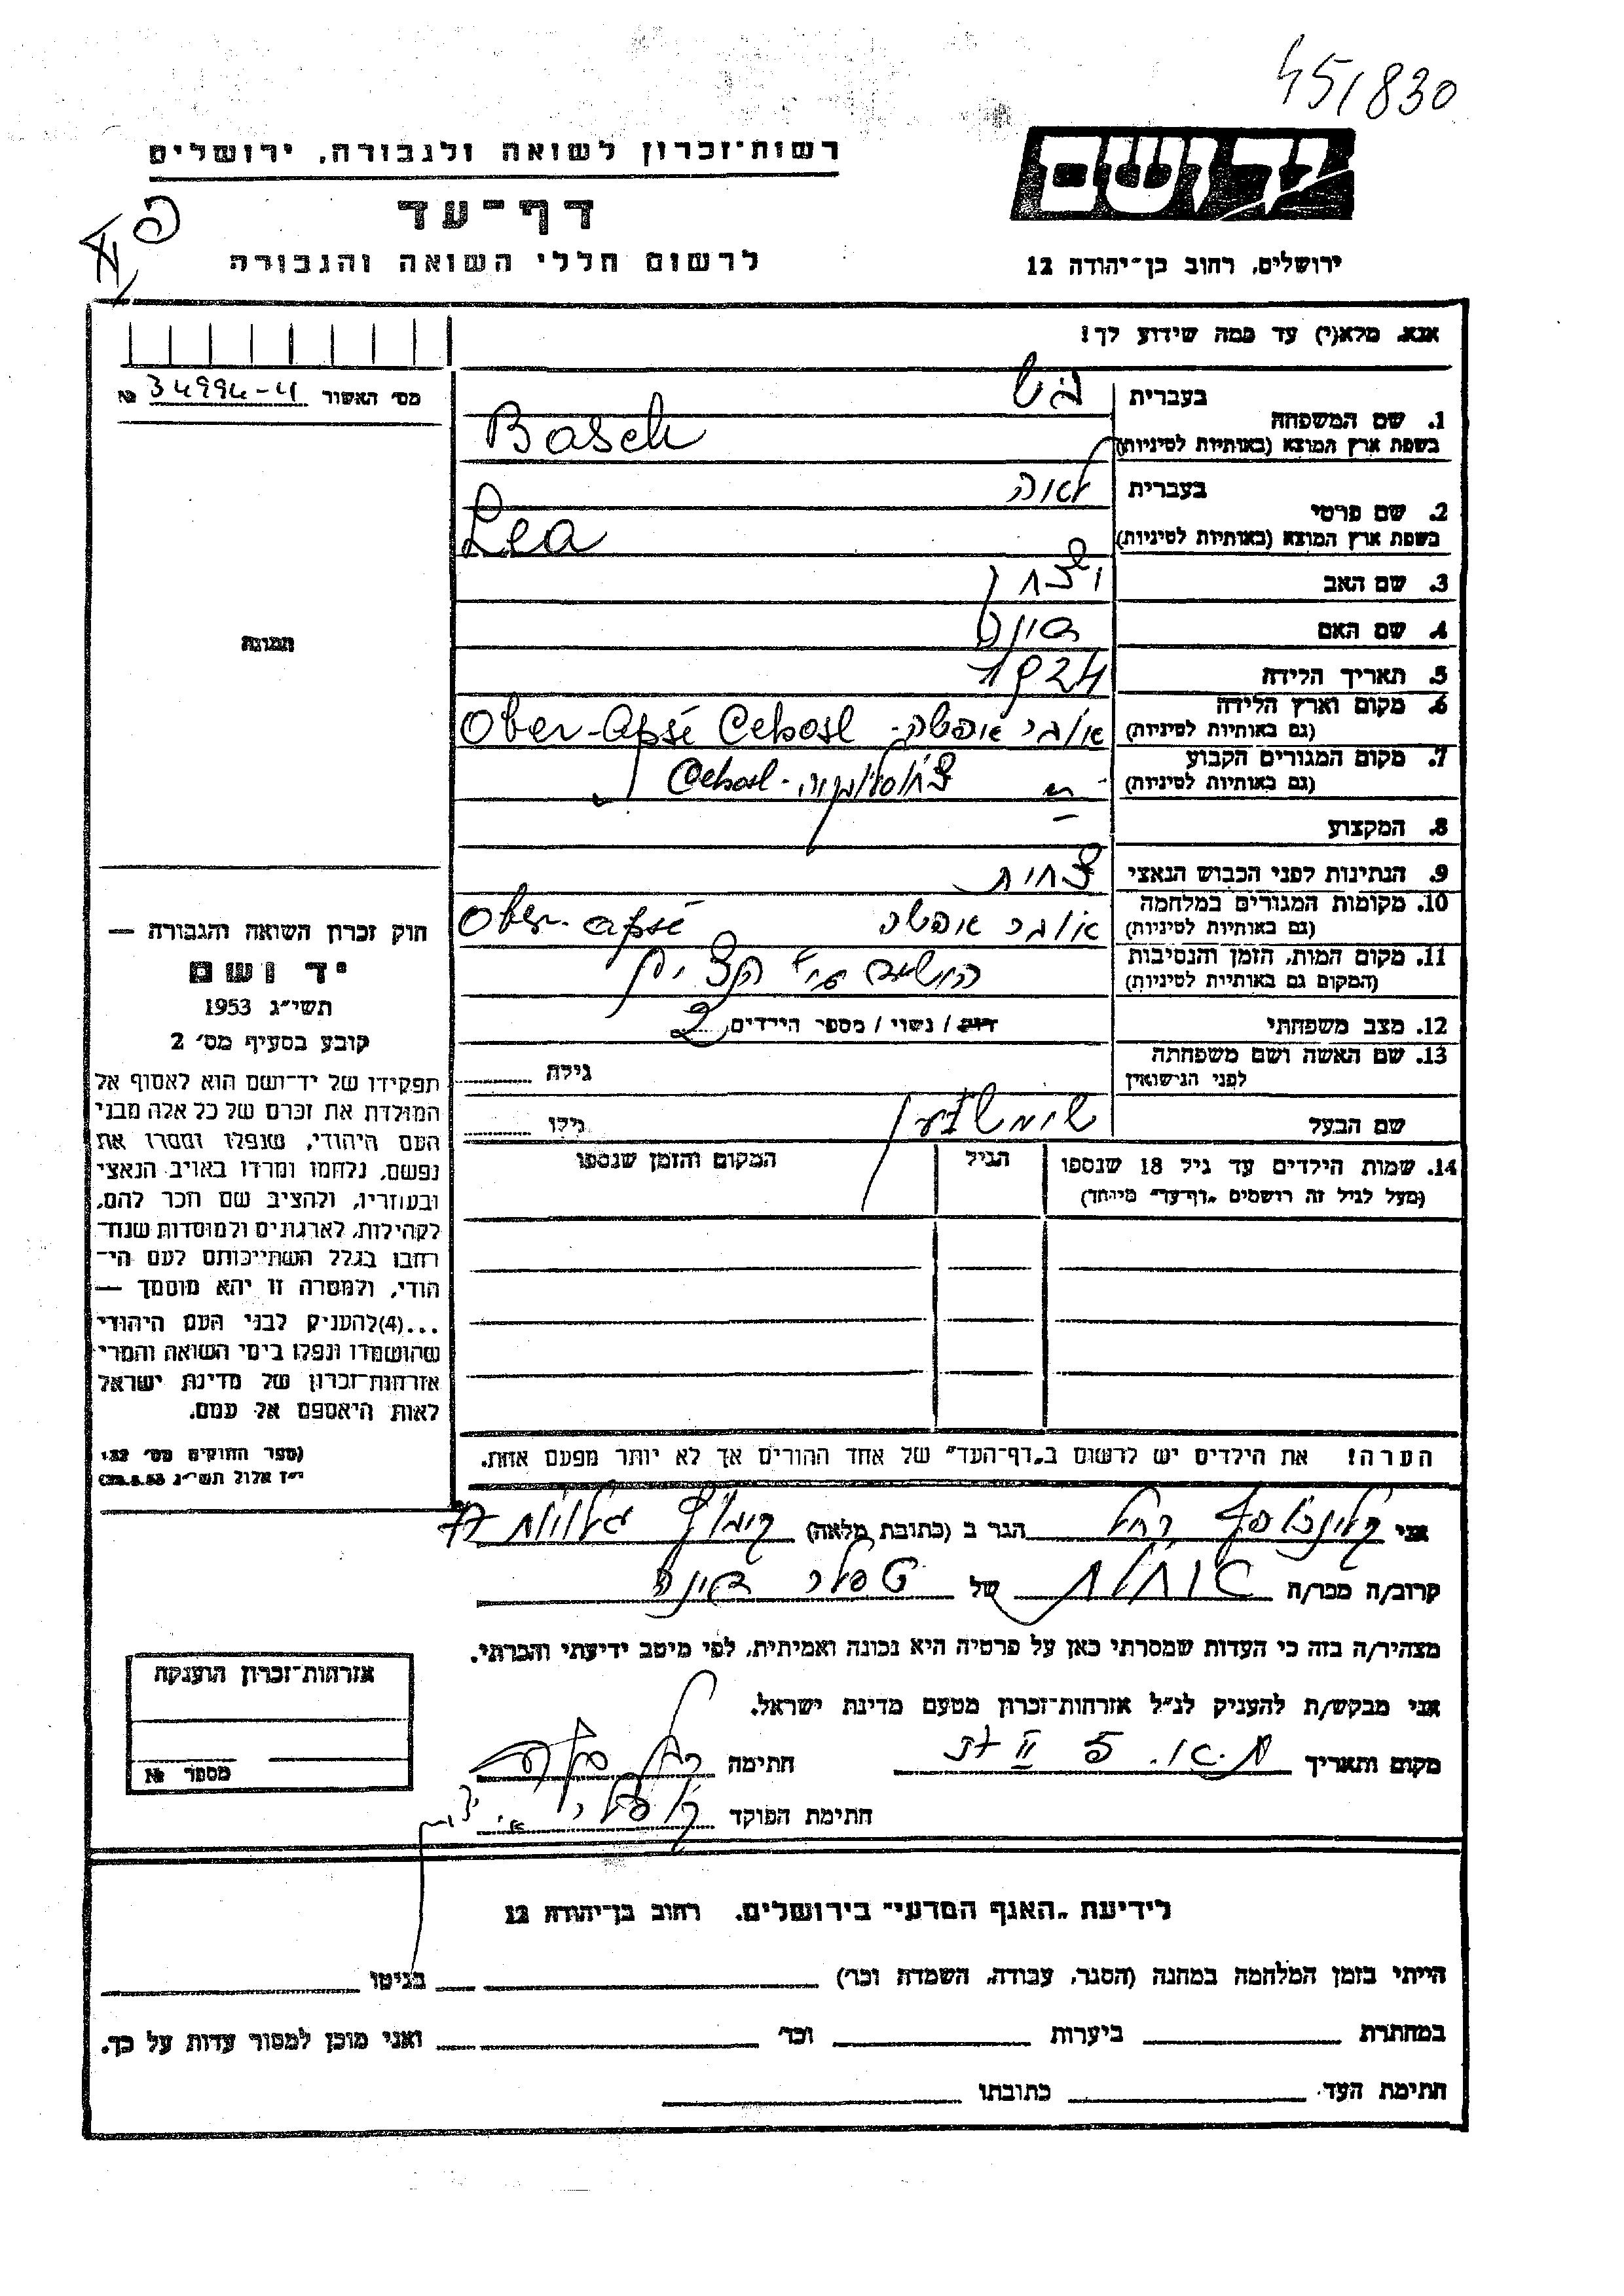 45/830
יד ושם
רשות־זכרון לשואה ולגבורה, ירושלים
דף־עד
לרשום חללי השואה והגבורה
ירושלים, רחוב בן־יהודה 12
אנא, מלא(י) עד כמה שידוע לך!
מס׳ האשור 34994-4 №
תמונה
1. שם המשפחה
בעברית בש
בשפת ארץ המוצא (באותיות לטיניות) Basch
2. שם פרטי
בעברית לאה
בשפת ארץ המוצא (באותיות לטיניות) Lea
3. שם האב יצחק
4. שם האם
5. תאריך הלידה 1924
6. מקום וארץ הלידה
(גם באותיות לטיניות) אובר אפשה - Ober-Apsé Cehosl
7. מקום המגורים הקבוע
(גם באותיות לטיניות) -״- צ׳כוסלובקיה - Cehosl
8. המקצוע
9. הנתינות לפני הכבוש הנאצי צ׳כית
10. מקומות המגורים במלחמה
(גם באותיות לטיניות) אובר אפשה Ober-apsé
11. מקום המות, הזמן והנסיבות
(המקום גם באותיות לטיניות)
12. מצב משפחתי רוק / נשוי / מספר הילדים 2
13. שם האשה ושם משפחתה
לפני הנישואין
גילה
שם הבעל
גילו
14. שמות הילדים עד גיל 18 שנספו
(מעל לגיל זה רושמים „דף־עד״ מיוחד)
הגיל
המקום והזמן שנספו
הערה! את הילדים יש לרשום ב„דף־העד״ של אחד ההורים אך לא יותר מפעם אחת.
חוק זכרון השואה והגבורה —
יד ושם
תשי״ג 1953
קובע בסעיף מס׳ 2
תפקידו של יד־ושם הוא לאסוף אל
המולדת את זכרם של כל אלה מבני
העם היהודי, שנפלו ומסרו את
נפשם, נלחמו ומרדו באויב הנאצי
ובעוזריו, ולהציב שם וזכר להם,
לקהילות, לארגונים ולמוסדות שנח־
רבו בגלל השתייכותם לעם הי־
הודי, ולמטרה זו יהא מוסמך —
...(4) להעניק לבני העם היהודי
שהושמדו ונפלו בימי השואה והמרי
אזרחות־זכרון של מדינת ישראל
לאות היאספם אל עמם.
(ספר החוקים מס׳ 132
י״ז אלול תשי״ג 28.8.53)
אני רחל הגר ב (כתובת מלאה)
קרוב/ה מכר/ה של
מצהיר/ה בזה כי העדות שמסרתי כאן על פרטיה היא נכונה ואמיתית, לפי מיטב ידיעתי והכרתי.
אני מבקש/ת להעניק לנ״ל אזרחות־זכרון מטעם מדינת ישראל.
מקום ותאריך חתימה
חתימת הפוקד
אזרחות־זכרון הוענקה
מספר №
לידיעת „האגף המדעי״ בירושלים, רחוב בן־יהודה 12
הייתי בזמן המלחמה במחנה (הסגר, עבודה, השמדה וכו׳) בגיטו
במחתרת ביערות וכו׳ ואני מוכן למסור עדות על כך.
חתימת העד כתובתו